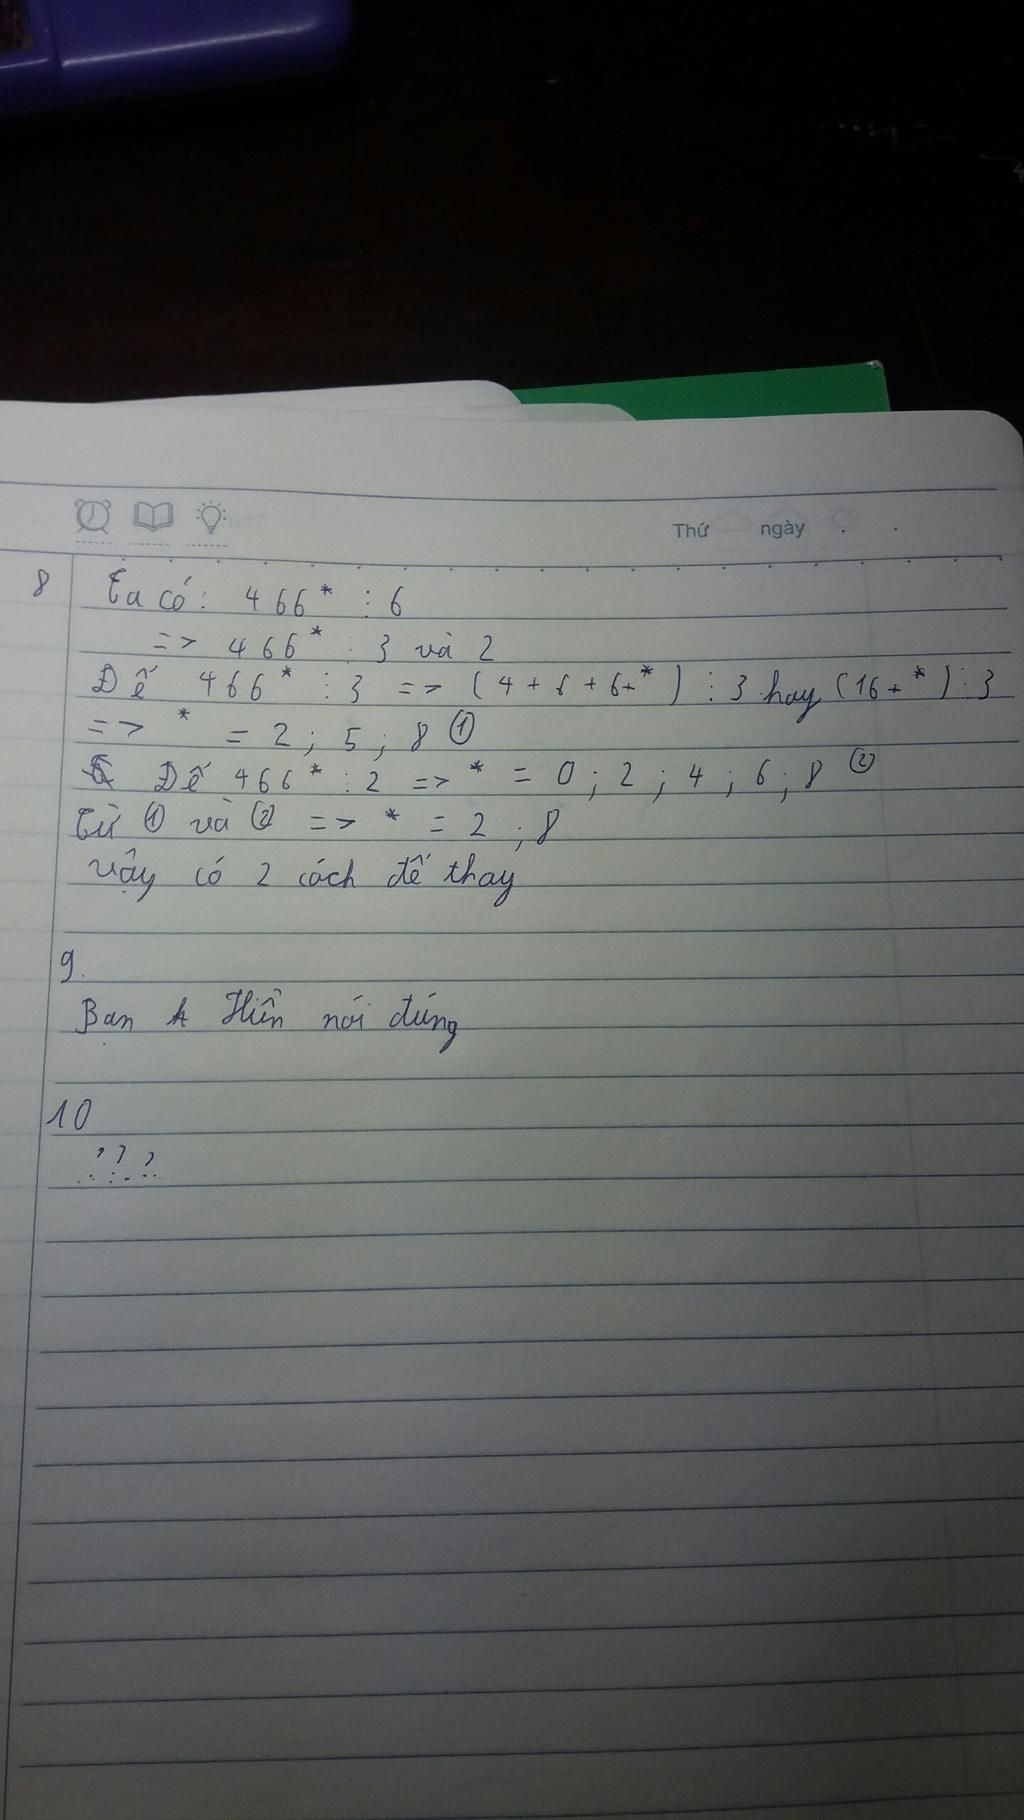 Thứ ngày . .
8 Ta có: 466* ⋮ 6
=> 466* ⋮ 3 và 2
Để 466* ⋮ 3 => (4+6+6+*) ⋮ 3 hay (16+*) ⋮ 3
=> * = 2; 5; 8 ①
Để 466* ⋮ 2 => * = 0; 2; 4; 6; 8 ②
Từ ① và ② => * = 2; 8
Vậy có 2 cách để thay
9.
Bạn Hiền nói đúng
10
???